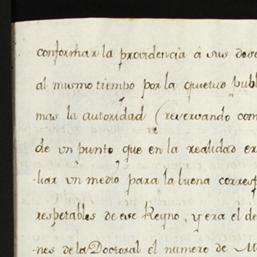 conformar la providencia à sus dese
al mismo tiempo por la quietud publ
mas la autoridad (reservando com
de un punto que en la realidad ex
liar un medio para la buena corresp
respetables de ese Reyno, y era el de
nes de la Doctoral el numero de M